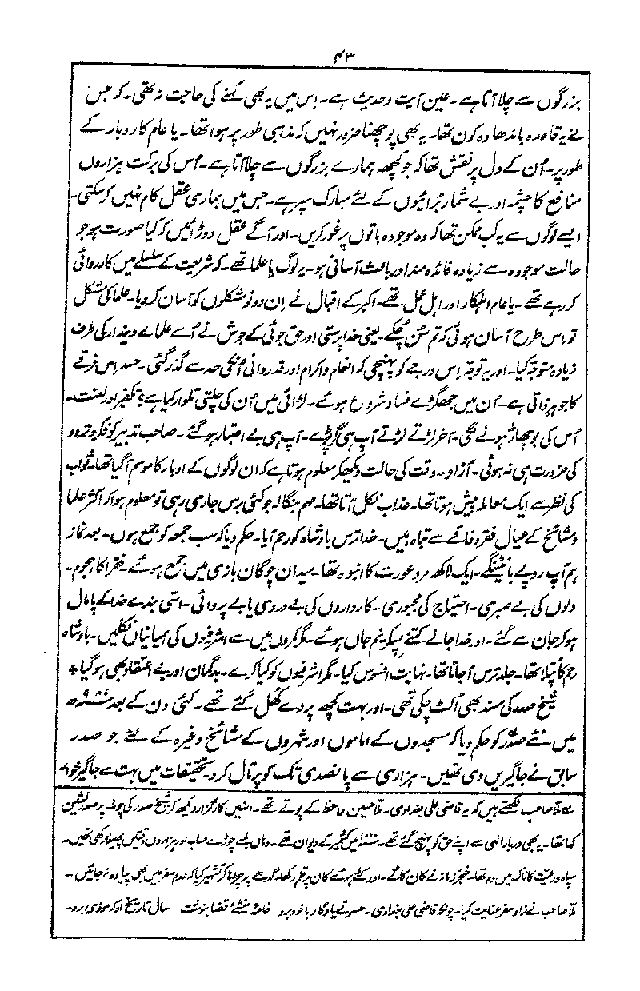 ۴۳
بزرگوں سے چلا آتا ہے۔ عین آیت و حدیث ہے۔ اس میں یہ بھی کہنے کی حاجت نہ تھی۔ کہ جس
نے یہ قاعدہ باندھا وہ کون تھا۔ یہ بھی پوچھنا ضرور نہیں کہ مذہبی طور پر ہوا تھا۔ یا عام کاروبار کے
طور پر۔ اُن کے دل پر نقش تھا کہ جو کچھ ہمارے بزرگوں سے چلا آتا ہے۔ اُس کی برکت ہزاروں
منافع کا چشمہ اور بے شمار برائیوں کے لئے مبارک سپر ہے۔ جس میں ہماری عقل کام نہیں کر سکتی۔
ایسے لوگوں سے یہ کب ممکن تھا کہ وہ موجودہ باتوں پر غور کریں۔ اور آگے عقل دوڑائیں کہ کیا صورت ہو جو
حالت موجودہ سے زیادہ فائدہ مند اور باعث آسانی ہو۔ یہ لوگ یا علما تھے۔ کہ شریعت کے سلسلے میں کارروائی
کر رہے تھے۔ یا عام اہلکار اور اہل عمل تھے۔ اکبر کے اقبال نے ان دونو مشکلوں کو آسان کر دیا۔ علما کی مشکل
تو اس طرح آسان ہوئی کہ تم سن چکے۔ یعنی خدا پرستی اور حق جوئی کے جوش نے اُسے علماے دیندار کی طرف
زیادہ متوجہ کیا۔ اور یہ توجہ اس درجے کو پہنچی کہ انعام و اکرام اور قدردانی اُنکی حد سے گذر گئی۔ حسد اس فرقے
کا جوہر ذاتی ہے۔ اُن میں جھگڑے فساد شروع ہوئے۔ لڑائی میں اُن کی چلتی تلوار کیا ہے؟ تکفیر اور لعنت۔
اُس کی بوچھاڑ ہونے لگی۔ آخر لڑتے لڑتے آپ ہی گر پڑے۔ آپ ہی بے اعتبار ہو گئے۔ صاحب تدبیر کو فکر و تردد
کی ضرورت ہی نہ ہوئی۔ آزاد۔ وقت کی حالت دیکھکر معلوم ہوتا ہے کہ ان لوگوں کے ادبار کا موسم آگیا تھا۔ ثواب
کی نظر سے ایک معاملہ پیش ہوتا تھا۔ عذاب نکل آتا تھا۔ مہم بنگالہ جو کئی برس جاری رہی تو معلوم ہوا کہ اکثر علما
و مشائخ کے عیال فقر و فاقے سے تباہ ہیں۔ خدا ترس بادشاہ کو رحم آیا۔ حکم دیا کہ سب جمعہ کو جمع ہوں۔ بعد نماز
ہم آپ روپے بانٹینگے۔ ایک لاکھ مرد عورت کا انبوہ تھا۔ میدان چوگان بازی میں جمع ہوئے۔ فقرا کا ہجوم۔
دلوں کی بے صبری۔ احتیاج کی مجبوری۔ کارداروں کی بے دردی یا بے پروائی۔ اسّی بندے خدا کے پامال
ہو کر جان سے گئے۔ اور خدا جانے کتنے پسکر نیم جان ہوئے۔ مگر کمروں میں سے اشرفیوں کی ہمیانیاں نکلیں۔ بادشاہ
رحم کا پتلا تھا۔ جلد ترس آجاتا تھا۔ نہایت افسوس کیا۔ مگر اشرفیوں کو کیا کرے۔ بدگمان اور بے اعتقاد بھی ہو گیا +
شیخ صدر کی مسند بھی اُلٹ چکی تھی۔ اور بہت کچھ پردے کھل گئے تھے۔ کئی دن کے بعد
میں نئے صدر کو حکم دیا کہ مسجدوں کے اماموں اور شہروں کے مشائخ وغیرہ کے لئے جو صدر
سابق نے جاگیریں دی تھیں۔ ہزاری سے پانصدی تک کو پڑتال کرو۔ تحقیقات میں بہت سے جاگیر خوار
ملا صاحب لکھتے ہیں کہ یہ قاضی علی بغدادی۔ ملا حسین واعظ کے پوتے تھے۔ انہیں کارگزار دیکھ کر شیخ صدر کی چوٹ پر صدر نشین
کیا تھا۔ یہ بھی دربار الٰہی سے اپنے حق کو پہنچ گئے تھے۔ کشمیر کے دیوان تھے۔ وہاں لمبے چوڑے حساب اور ہزاروں رقمیں پھیلا رکھی تھیں۔
ملا صاحب نے زاد سفر عنایت کیا۔ چونکہ قاضی علی بغدادی۔ حسرتے یادگار با خود برد